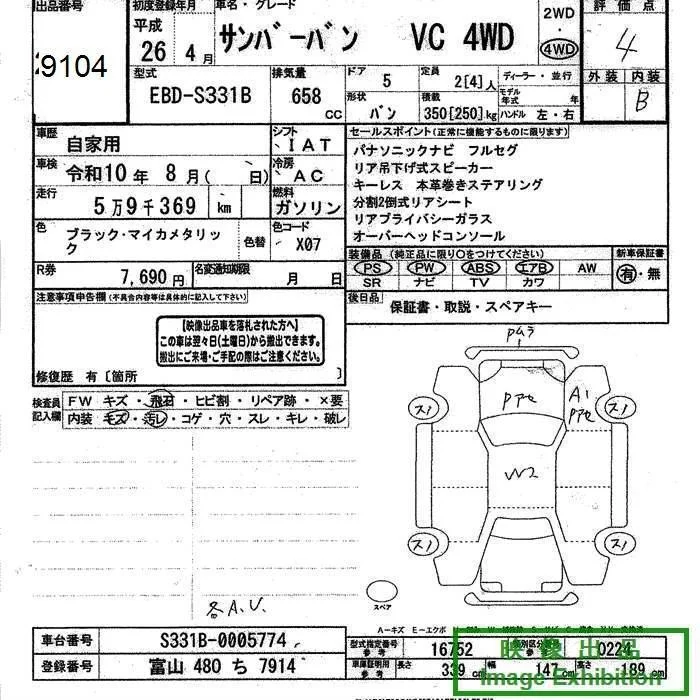 出品番号 初度登録年月 車名・グレード 2WD 評価点
9104 平成 26 4月 サンバーバン VC 4WD 4WD 4
型式 排気量 ドア 5 定員 2[4]人 ディーラー・並行 外装 内装
EBD-S331B 658 CC 形状 バン 積載 350[250]kg モデル年式 年 ハンドル 左・右 B
車歴 自家用 シフト IAT セールスポイント(正常に機能するものに限ります)
車検 令和10年 8月( 日) 冷房 AC
走行 5万9千369 km 燃料 ガソリン
パナソニックナビ フルセグ
リア吊下げ式スピーカー
キーレス 本革巻きステアリング
分割2倒式リアシート
リアプライバシーガラス
オーバーヘッドコンソール
色 ブラック・マイカメタリック 色替 色コード X07
装備品(純正品に限り○をつけてください) 新車保証書
R券 7,690円 名変通知期限 月 日 PS PW ABS エアB AW 有・無
SR ナビ TV カワ
注意事項申告欄(不具合内容等は具体的に記入して下さい) 後日品 保証書・取説・スペアキー
【映像出品車を落札された方へ】
この車は翌々日(土曜日)から搬出できます。
搬出にご来場・ご手配の際はご注意ください。
修復歴 有〔箇所 〕
検査員記入欄 FW キズ・飛石・ヒビ割・リペア跡・×要
内装 キズ・汚レ・コゲ・穴・スレ・キレ・破レ
A1
W2
スペア
各A.V.
A-キズ E-エクボ
車台番号 S331B-0005774 型式指定番号 参考 16752 類別区分番号 参考 0224
登録番号 富山 480 ち 7914 車庫証明用 参考 長さ 339cm 幅 147cm 高さ 189cm
映像出品
Image Exhibition